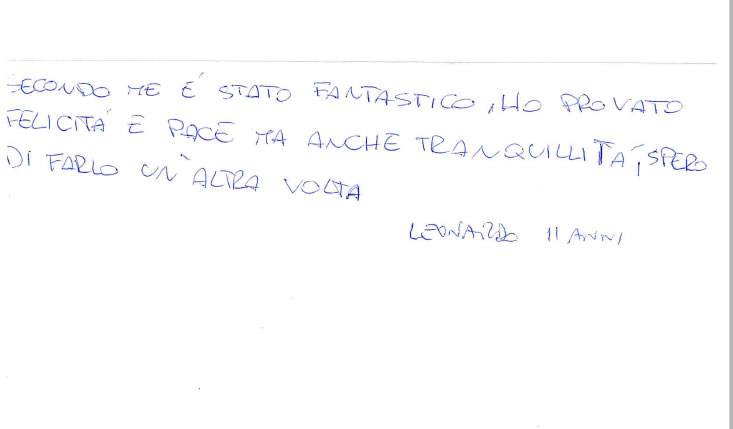 SECONDO ME É STATO FANTASTICO, HO PROVATO
FELICITÁ E PACE MA ANCHE TRANQUILLITÁ, SPERO
DI FARLO UN'ALTRA VOLTA
LEONARDO 11 ANNI